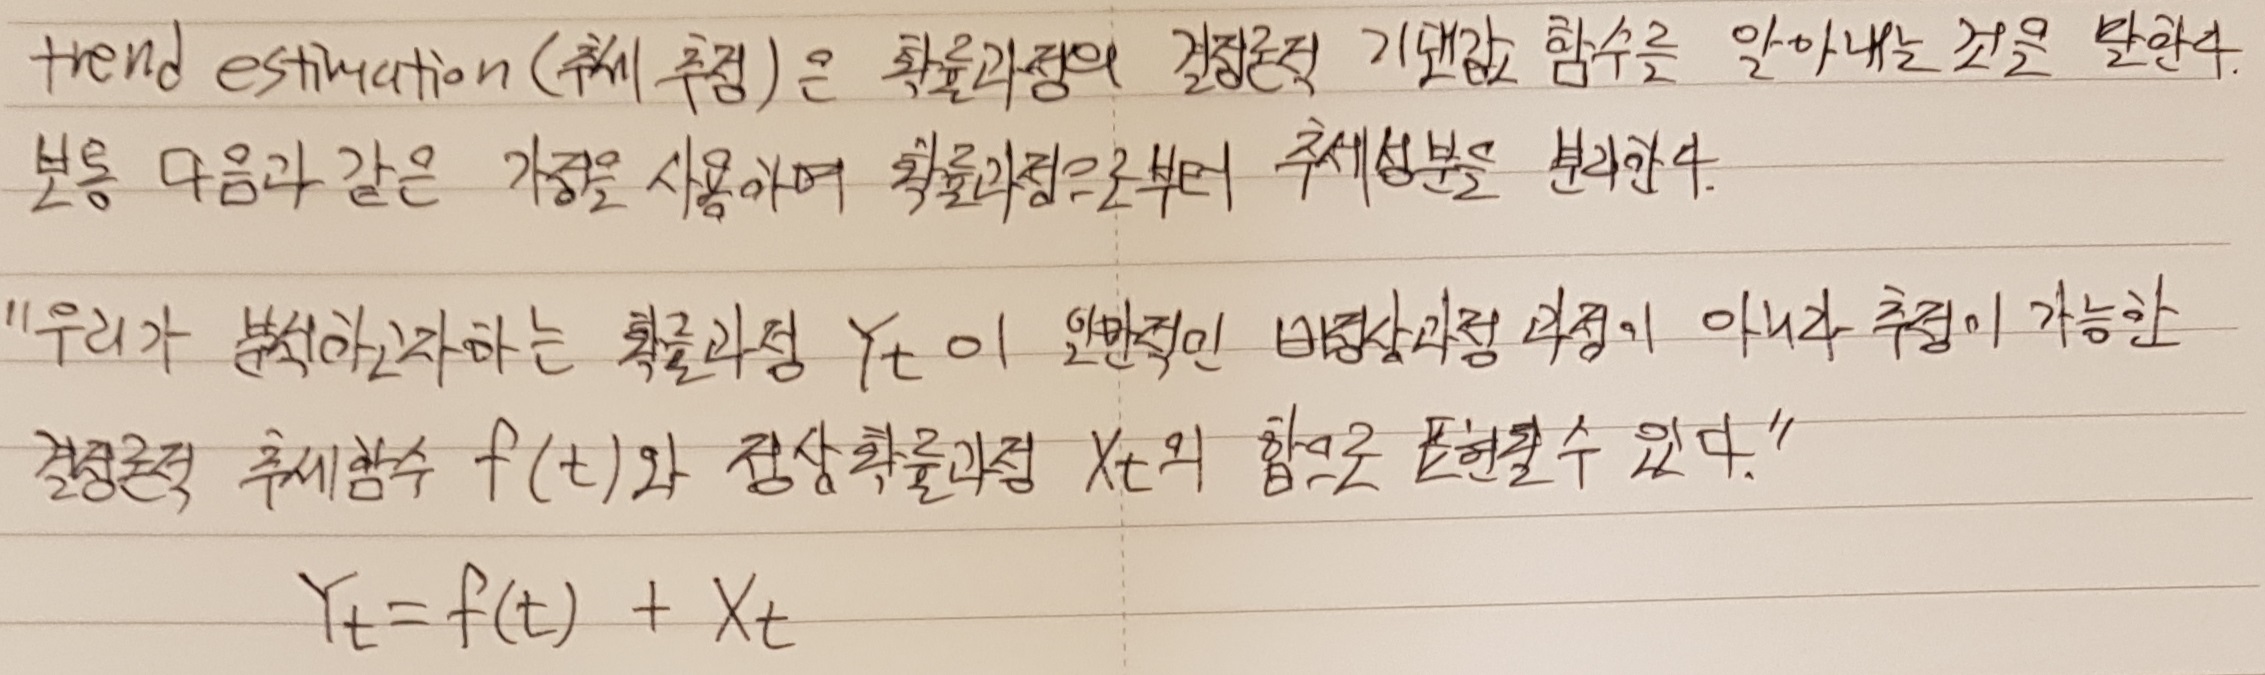 trend estimation (추세 추정)은 확률과정의 결정론적 기댓값 함수를 알아내는 것을 말한다.
보통 다음과 같은 가정을 사용하여 확률과정으로부터 추세성분을 분리한다.
"우리가 분석하고자하는 확률과정 Yt 이 일반적인 비정상과정 과정이 아니라 추정이 가능한
결정론적 추세함수 f(t)와 정상확률과정 Xt의 합으로 표현될 수 있다."
Yt = f(t) + Xt